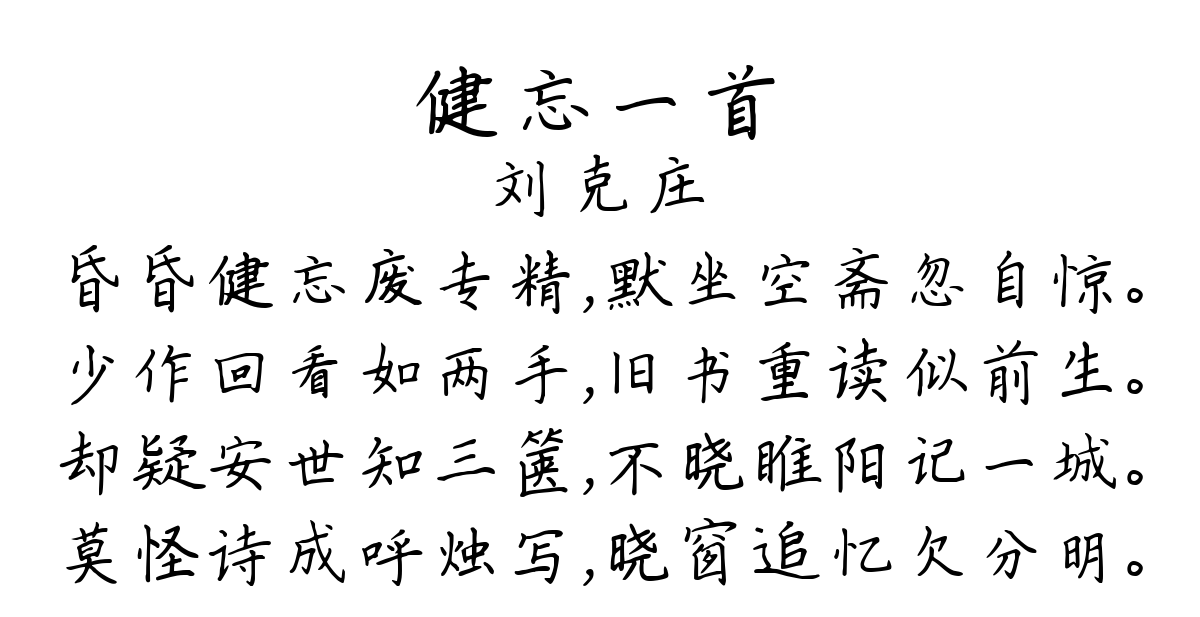 健忘一首
刘克庄
昏昏健忘废专精,默坐空斋忽自惊。
少作回看如两手,旧书重读似前生。
却疑安世知三箧,不晓睢阳记一城。
莫怪诗成呼烛写,晓窗追忆欠分明。